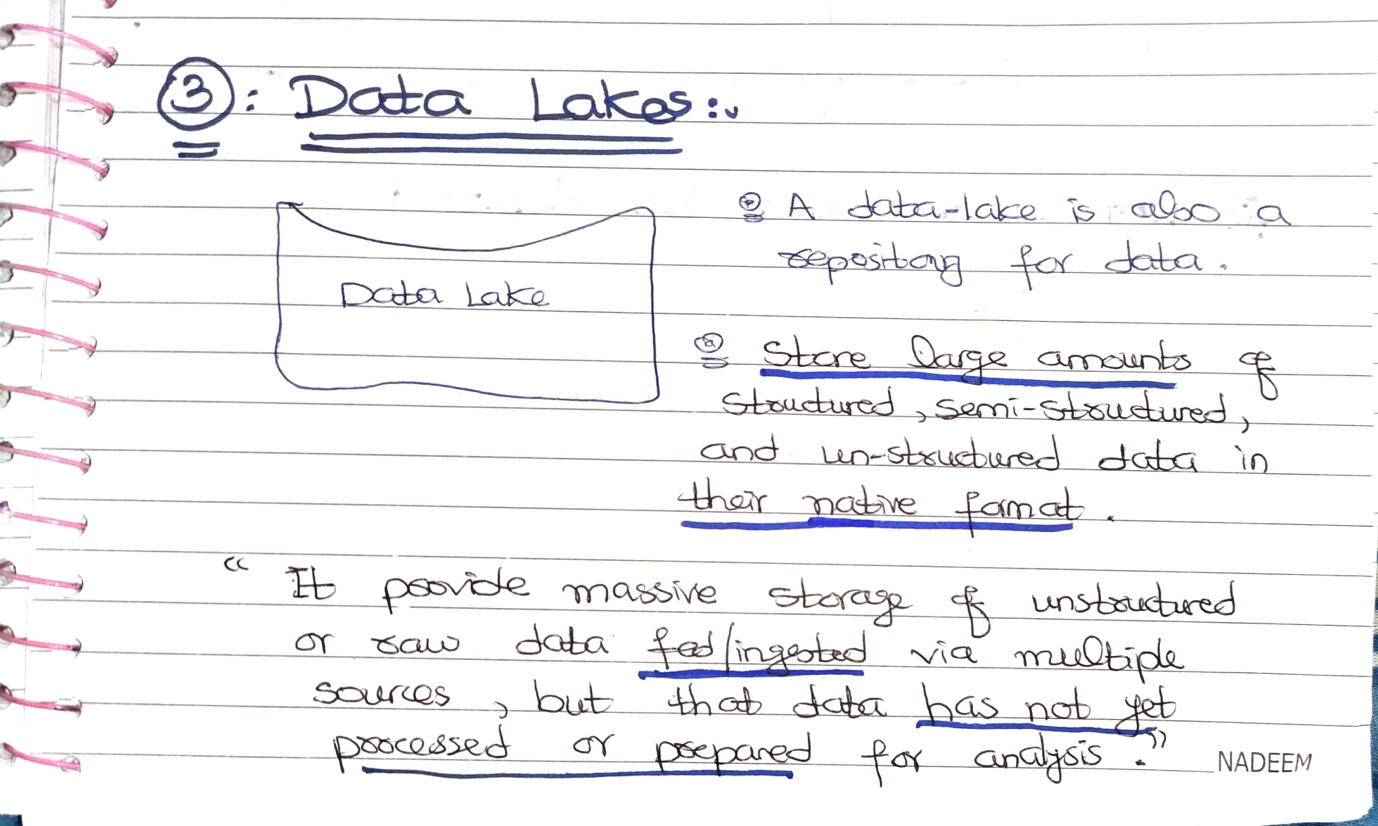 3: Data Lakes:
Data Lake
A data-lake is also a
repository for data.
Store large amounts of
structured, semi-structured,
and un-structured data in
their native format.
“ It provide massive storage of unstructured
or raw data fed/ingested via multiple
sources, but that data has not yet
processed or prepared for analysis. ”
NADEEM